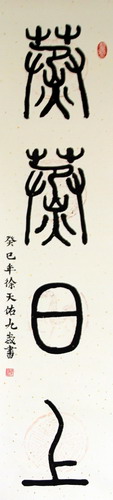 蒸蒸日上
癸巳年徐天佑九歲書